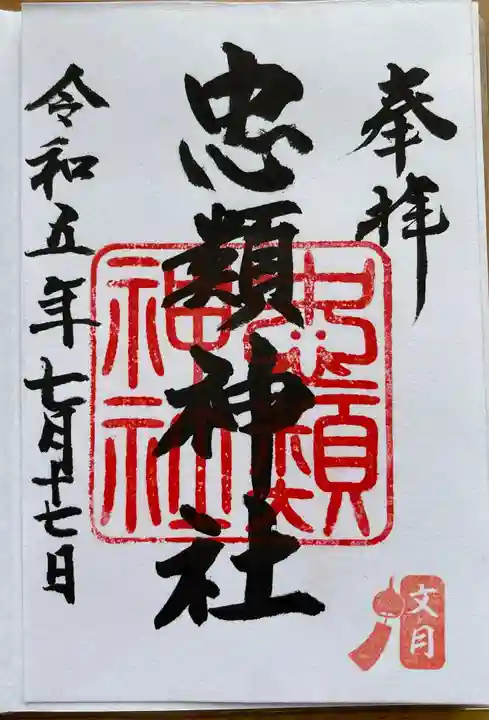 奉拝
忠類神社
忠類
神社
令和五年七月十七日
文月